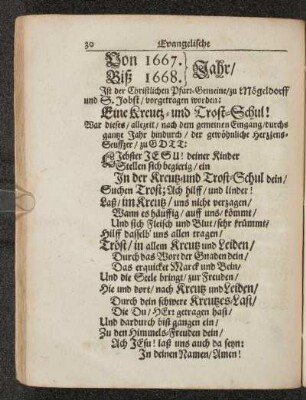 30 Evangelische
Von 1667.
Biß 1668. } Jahr/
Ist der Christlichen Pfarr-Gemeine/ zu Mögeldorff
und S. Jobst/ vorgetragen worden:
Eine Kreutz- und Trost-Schul!
War dieses/ allezeit/ nach dem gemeinen Eingang/ durchs
gantze Jahr hindurch/ der gewöhnliche Hertzens-
Seuffzer/ zu GOTT:
Liebster JESU! deiner Kinder
Stellen sich begierig/ ein
In der Kreutz- und Trost-Schul dein/
Suchen Trost; Ach hilff/ und linder!
Laß/ im Kreutz/ uns nicht verzagen/
Wann es häuffig/ auff uns/ kömmt/
Und sich Fleisch und Blut/ sehr krümmt/
Hilff dasselb' uns allen tragen/
Tröst/ in allem Kreutz und Leiden/
Durch das Wort der Gnaden dein/
Das erquicket Marck und Bein/
Und die Seele bringt/ zur Freuden/
Hie und dort/ nach Kreutz und Leiden/
Durch dein schwere Kreutzes-Last/
Die Du/ HErr getragen hast/
Und dardurch bist gangen ein/
Zu den Himmels-Freuden dein/
Ach JEsu! laß uns auch da seyn:
In deinen Namen/ Amen!